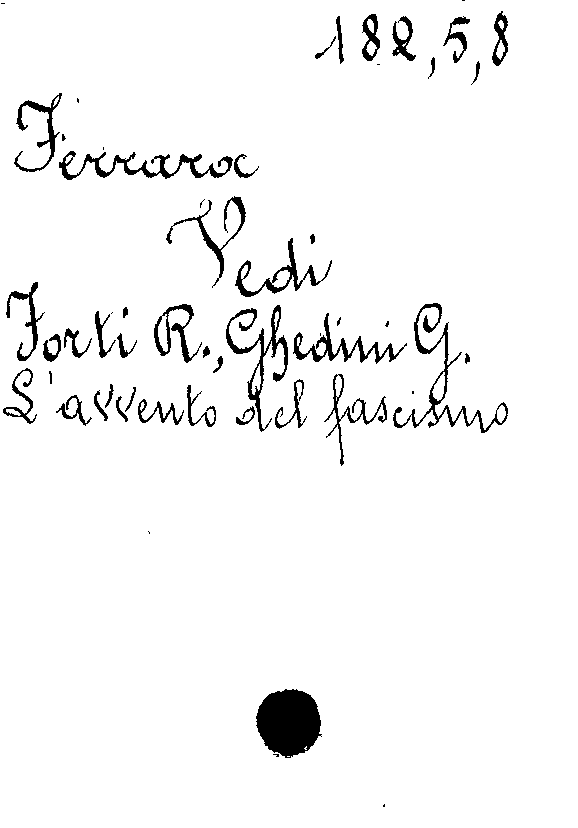 182,5,8
Ferrara
Vedi
Forti R., Ghedini G.
L'avvento del fascismo